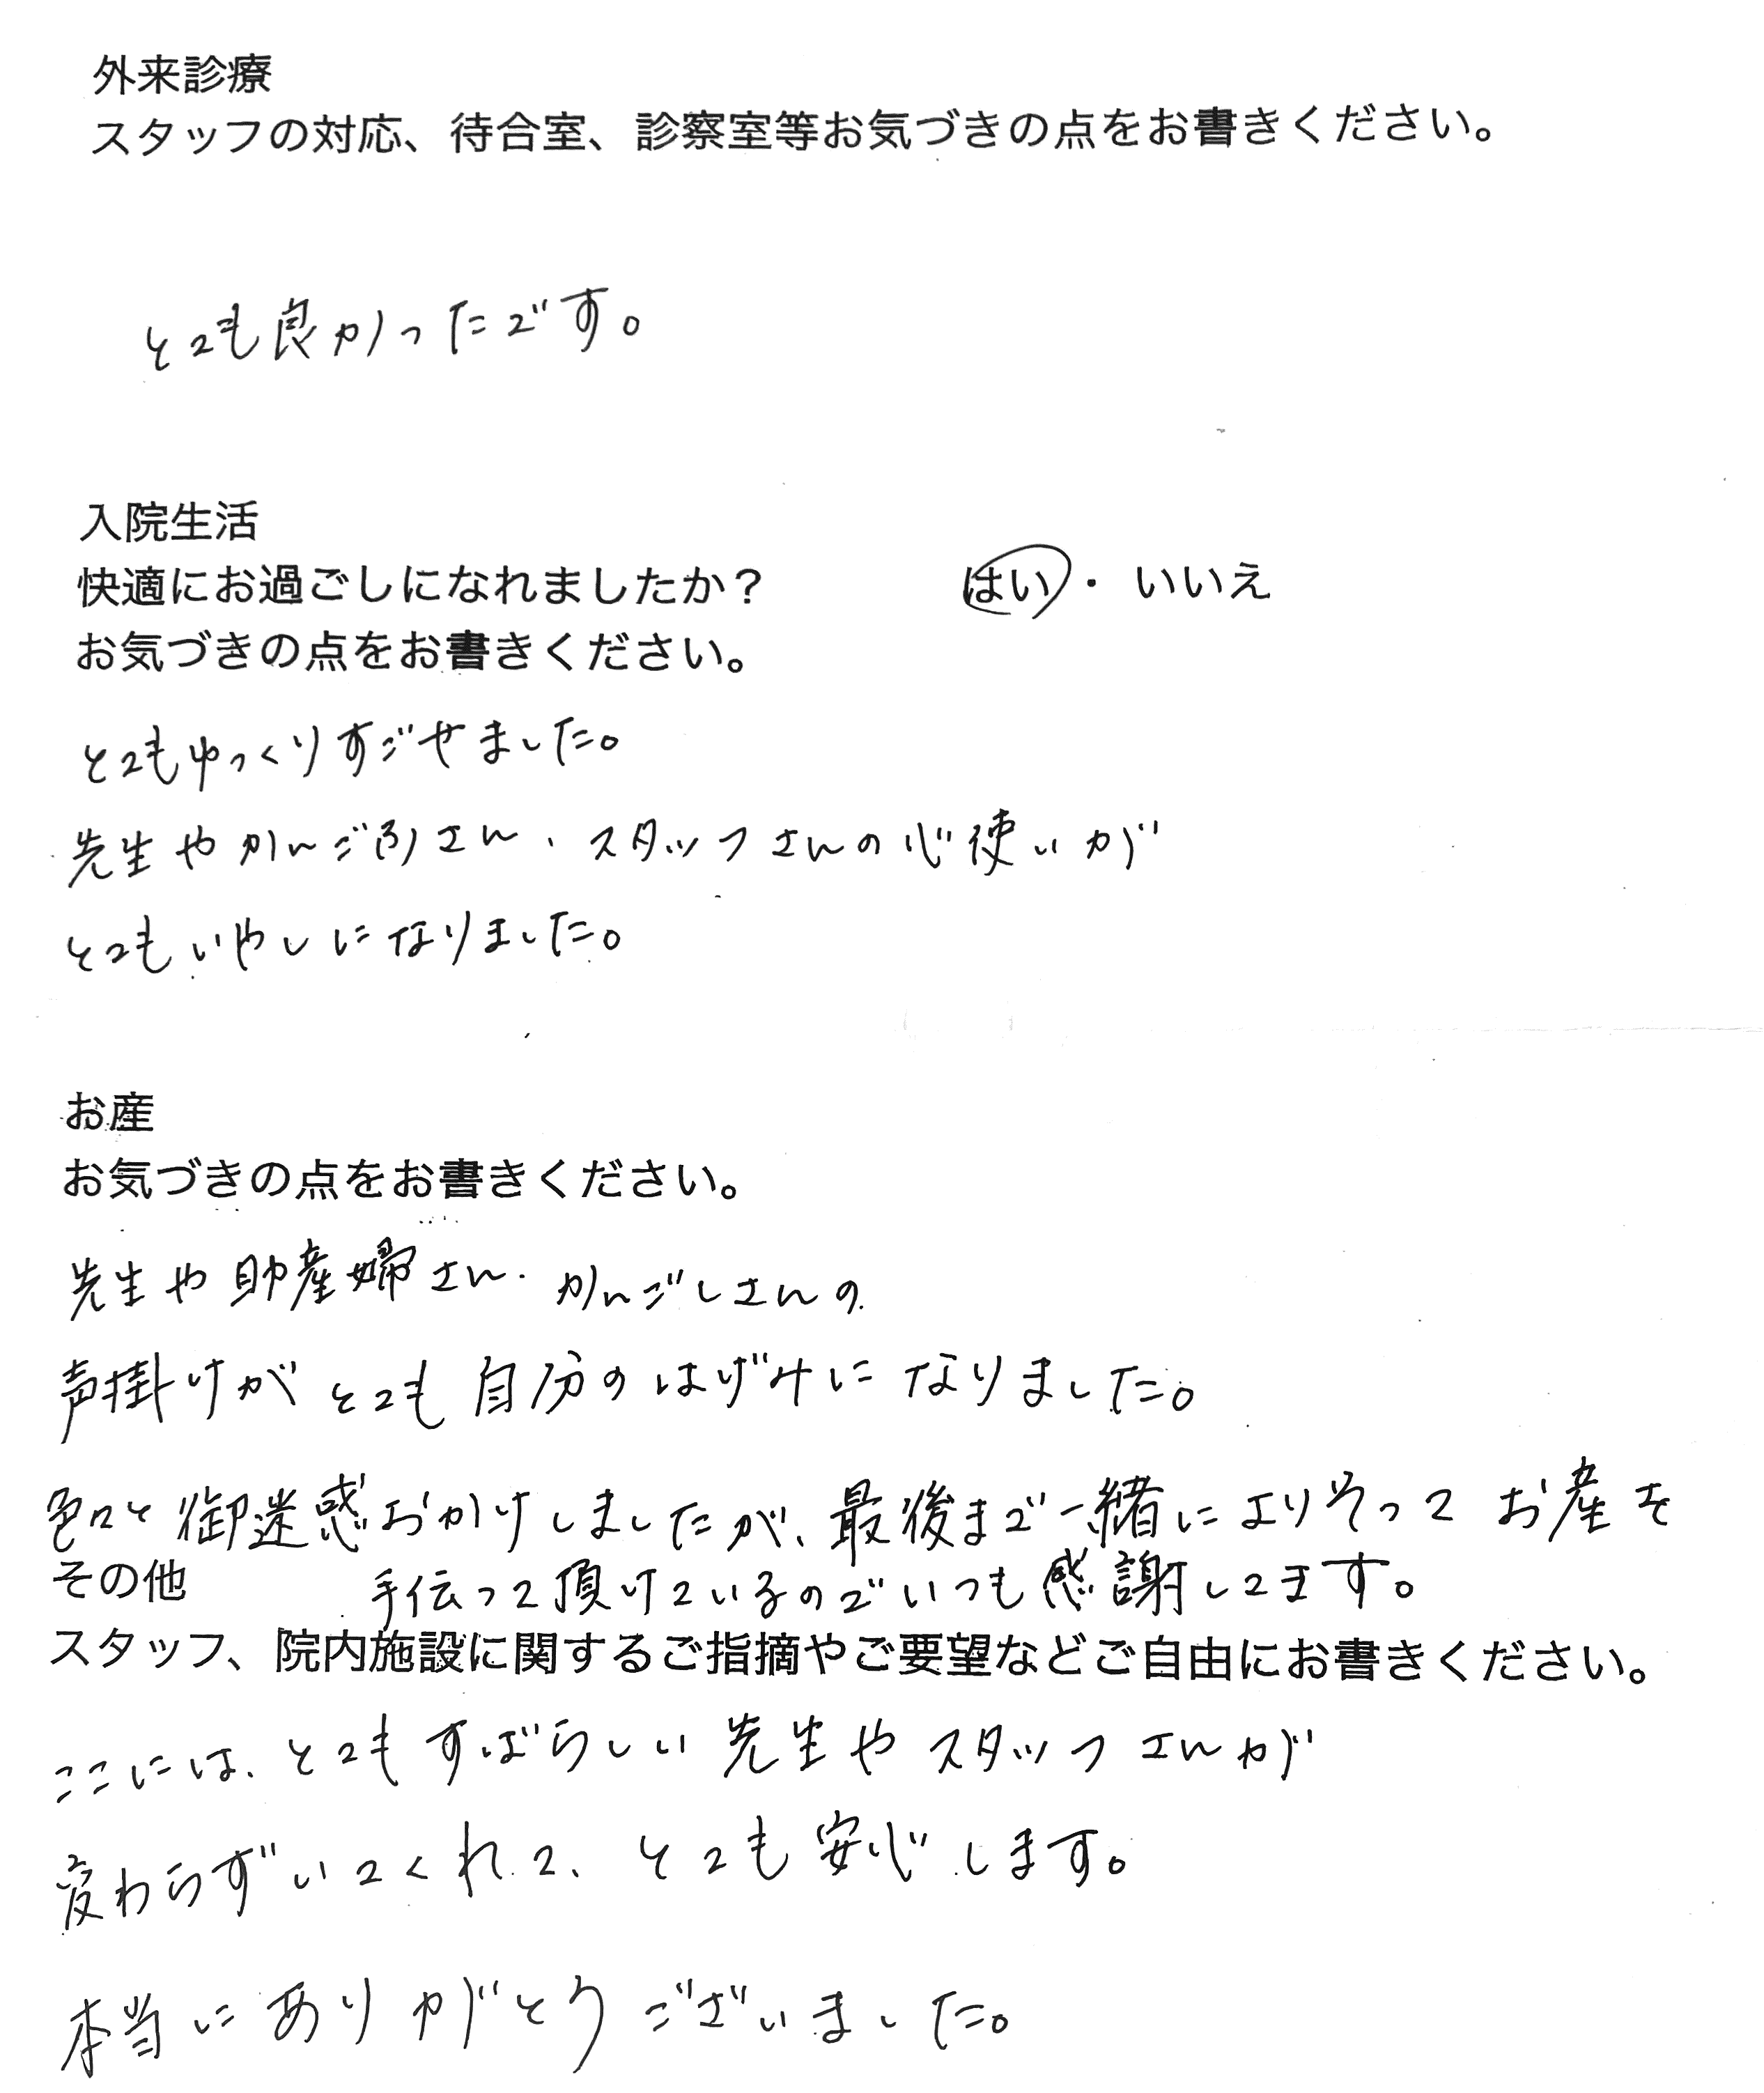 外来診療
スタッフの対応、待合室、診察室等お気づきの点をお書きください。
とても良かったです。
入院生活
快適にお過ごしになれましたか？ はい・いいえ
お気づきの点をお書きください。
とてもゆっくりすごせました。
先生やかんごふさん、スタッフさんの心使いが
とてもいやしになりました。
お産
お気づきの点をお書きください。
先生や助産婦さん・かんごしさんの
声掛けがとても自分のはげみになりました。
色々と御迷惑おかけしましたが、最後まで一緒によりそってお産を
手伝って頂けているのでいつも感謝してます。
その他
スタッフ、院内施設に関するご指摘やご要望などご自由にお書きください。
ここには、とてもすばらしい先生やスタッフさんが
変わらずいてくれて、とても安心します。
本当にありがとうございました。